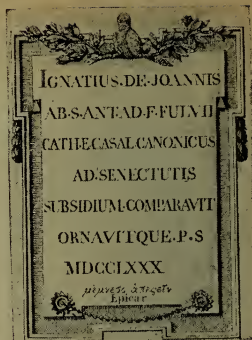 IGNATIUS·DE·JOANNIS
AB·S·ANT·AD·F·FULVII
CATH·E·CASAL·CANONICUS
AD·SENECTUTIS
SUBSIDIUM·COMPARAVIT
ORNAVITQUE·P·S
MDCCLXXX
μέμνησο ἀπιστεῖν
Epicar